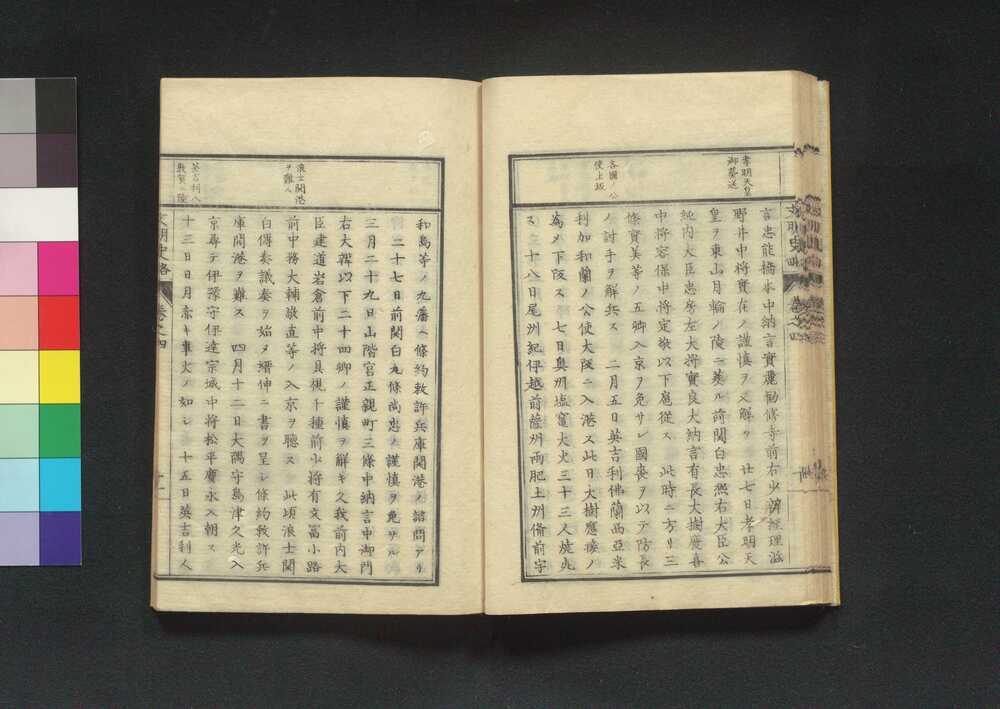 孝明天皇
御葬送
各國ノ公
使上坂
言忠能橋本中納言實麗勸修寺前右少辨經理滋
野井中将實在ノ謹慎ヲ又解ク 廿七日孝明天
皇ヲ東山月輪ノ陵ニ葬ル前関白忠凞右大臣公
純内大臣忠房左大将實良大納言有長大樹慶喜
中将容保中将定敬以下扈從ス 此時ニ方リ三
條實美等ノ五卿入京ヲ免サレ國喪ヲ以テ防長
ノ討手ヲ解兵ス 二月五日英吉利佛蘭西亞米
利加和蘭ノ公使大阪ニ入港ス此日大樹應接ノ
為メ下阪ス 七日奥州塩竈大火三十三人焼死
ス 十八日尾洲紀伊越前薩州両肥土州備前宇
和島等ノ九藩ヘ條約敕許兵庫開港ノ諮問アリ
二十七日前関白九條尚忠ノ謹慎ヲ免サル
三月二十九日山階宮正親町三條中納言中御門
右大辨以下二十四卿ノ謹慎ヲ解キ久我前内大
臣建道岩倉前中将具視千種前少将有文冨小路
前中務大輔敬直等ノ入京ヲ聴ス 此頃浪士関
白傳奏議奏ヲ始メ縉伸ニ書ヲ呈シ條約敕許兵
庫開港ヲ難ス 四月十二日大隅守島津久光入
京尋テ伊豫守伊達宗城中将松平慶永入朝ス
十三日日月赤キ事火ノ如シ 十五日英吉利人
浪士開港
ヲ難ス
英吉利人
敦賀ニ陸
文明史略 巻之四